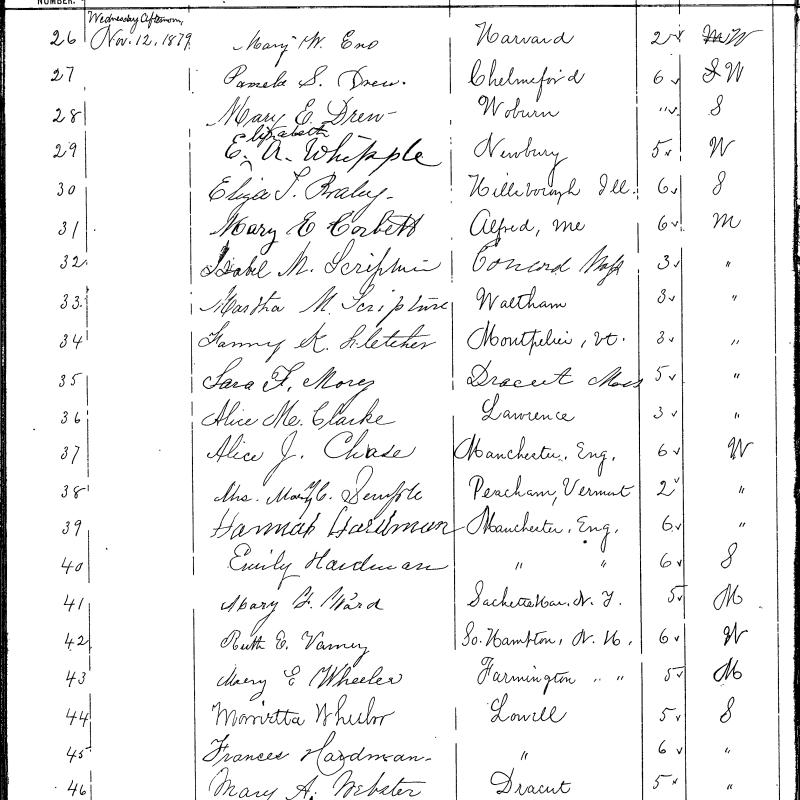 NUMBER.
26 Wednesday Afternoon, Nov. 12, 1879. Mary W. Eno Harvard 2 W
27 Pamela S. Drew. Chelmsford 6 W
28 Mary E. Drew Woburn " S
29 E. Elizabeth A. Whipple Newbury 5 W
30 Eliza T. Braley. Hillsborough Ill. 6 S
31 Mary E Corbett Alfred, Me 6 M
32 Isabel M. Scripture Concord Mass 3 "
33 Martha M. Scripture Waltham 3 "
34 Fanny K. Fletcher Montpelier, Vt. 3 "
35 Sara F. Morey Dracut Mass 5 "
36 Alice Mc. Clarke Lawrence 3 "
37 Alice J. Chase Manchester, Eng. 6 W
38 Mrs. Mary C. Semple Peacham, Vermont 2 "
39 Hannah Hardman Manchester, Eng. 6 "
40 Emily Hardman " " 6 S
41 Mary Ward N. Y. 5 M
42 Ruth E. Varney So. Hampton, N. H. 6 W
43 Mary E Wheeler Farmington " " 5 M
44 Wheeler Lowell 5 S
45 Frances Hardman. " 6 "
46 Mary A. Webster Dracut 5 "